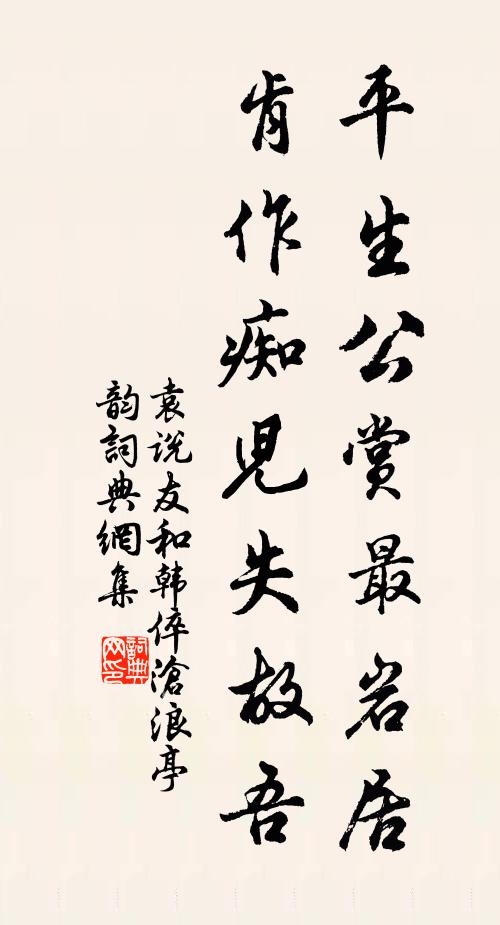 平生公賞最岩居
肯作痴兒失故吾
袁说友和韩倅滄浪亭
韵詞典網集
詞典网印